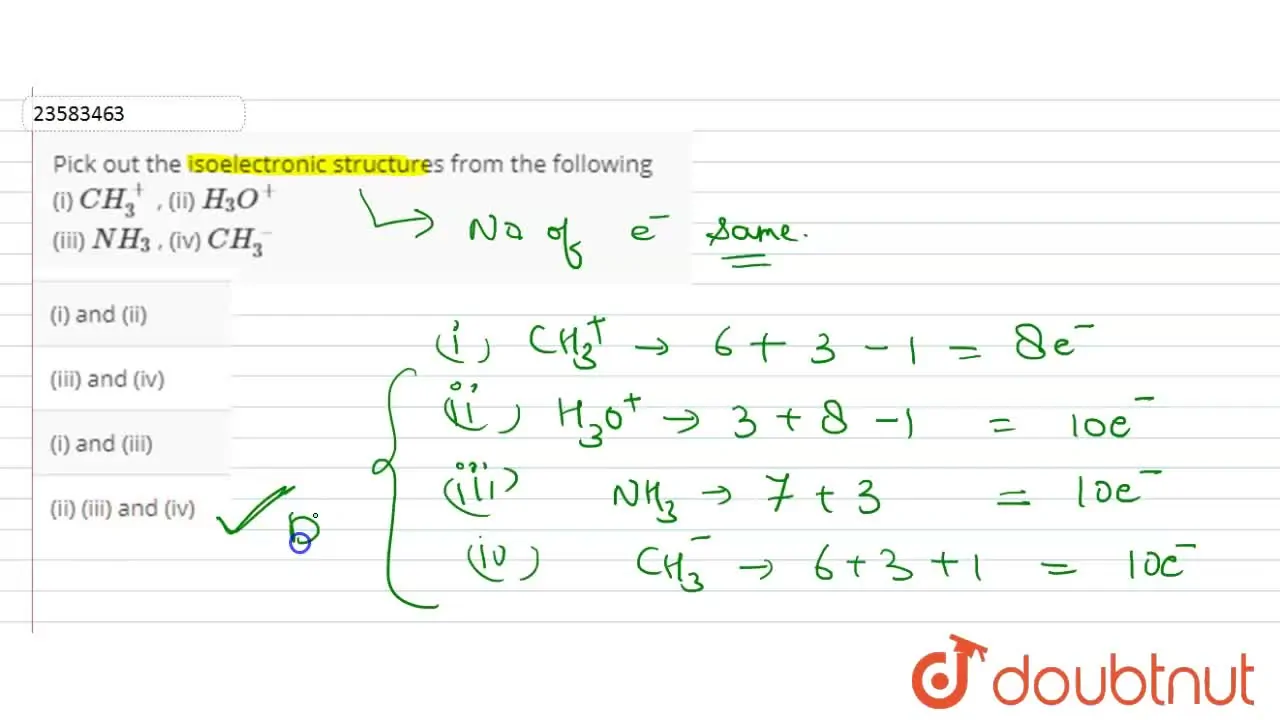 23583463
Pick out the isoelectronic structures from the following
(i) CH₃⁺ , (ii) H₃O⁺
(iii) NH₃ , (iv) CH₃⁻
→ No of e⁻ same.
(i) and (ii)
(iii) and (iv)
(i) and (iii)
(ii) (iii) and (iv)
D
(i) CH₃⁺ → 6 + 3 - 1 = 8e⁻
(ii) H₃O⁺ → 3 + 8 - 1 = 10e⁻
(iii) NH₃ → 7 + 3 = 10e⁻
(iv) CH₃⁻ → 6 + 3 + 1 = 10e⁻
doubtnut